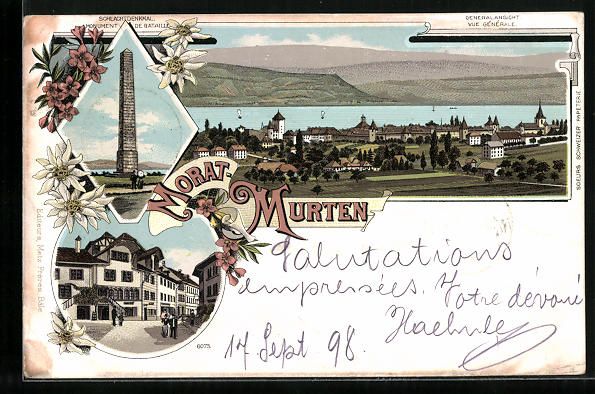 SCHLACHTDENKMAL.
MONUMENT DE BATAILLE
GENERALANSICHT
VUE GÉNÉRALE.
SOEURS SCHWEIZER PAPETERIE
MORAT-
MURTEN
Salutations
empressées. Votre dévoué
Haehnle
17 Sept 98.
Editeurs, Metz Frères, Bâle
6073.